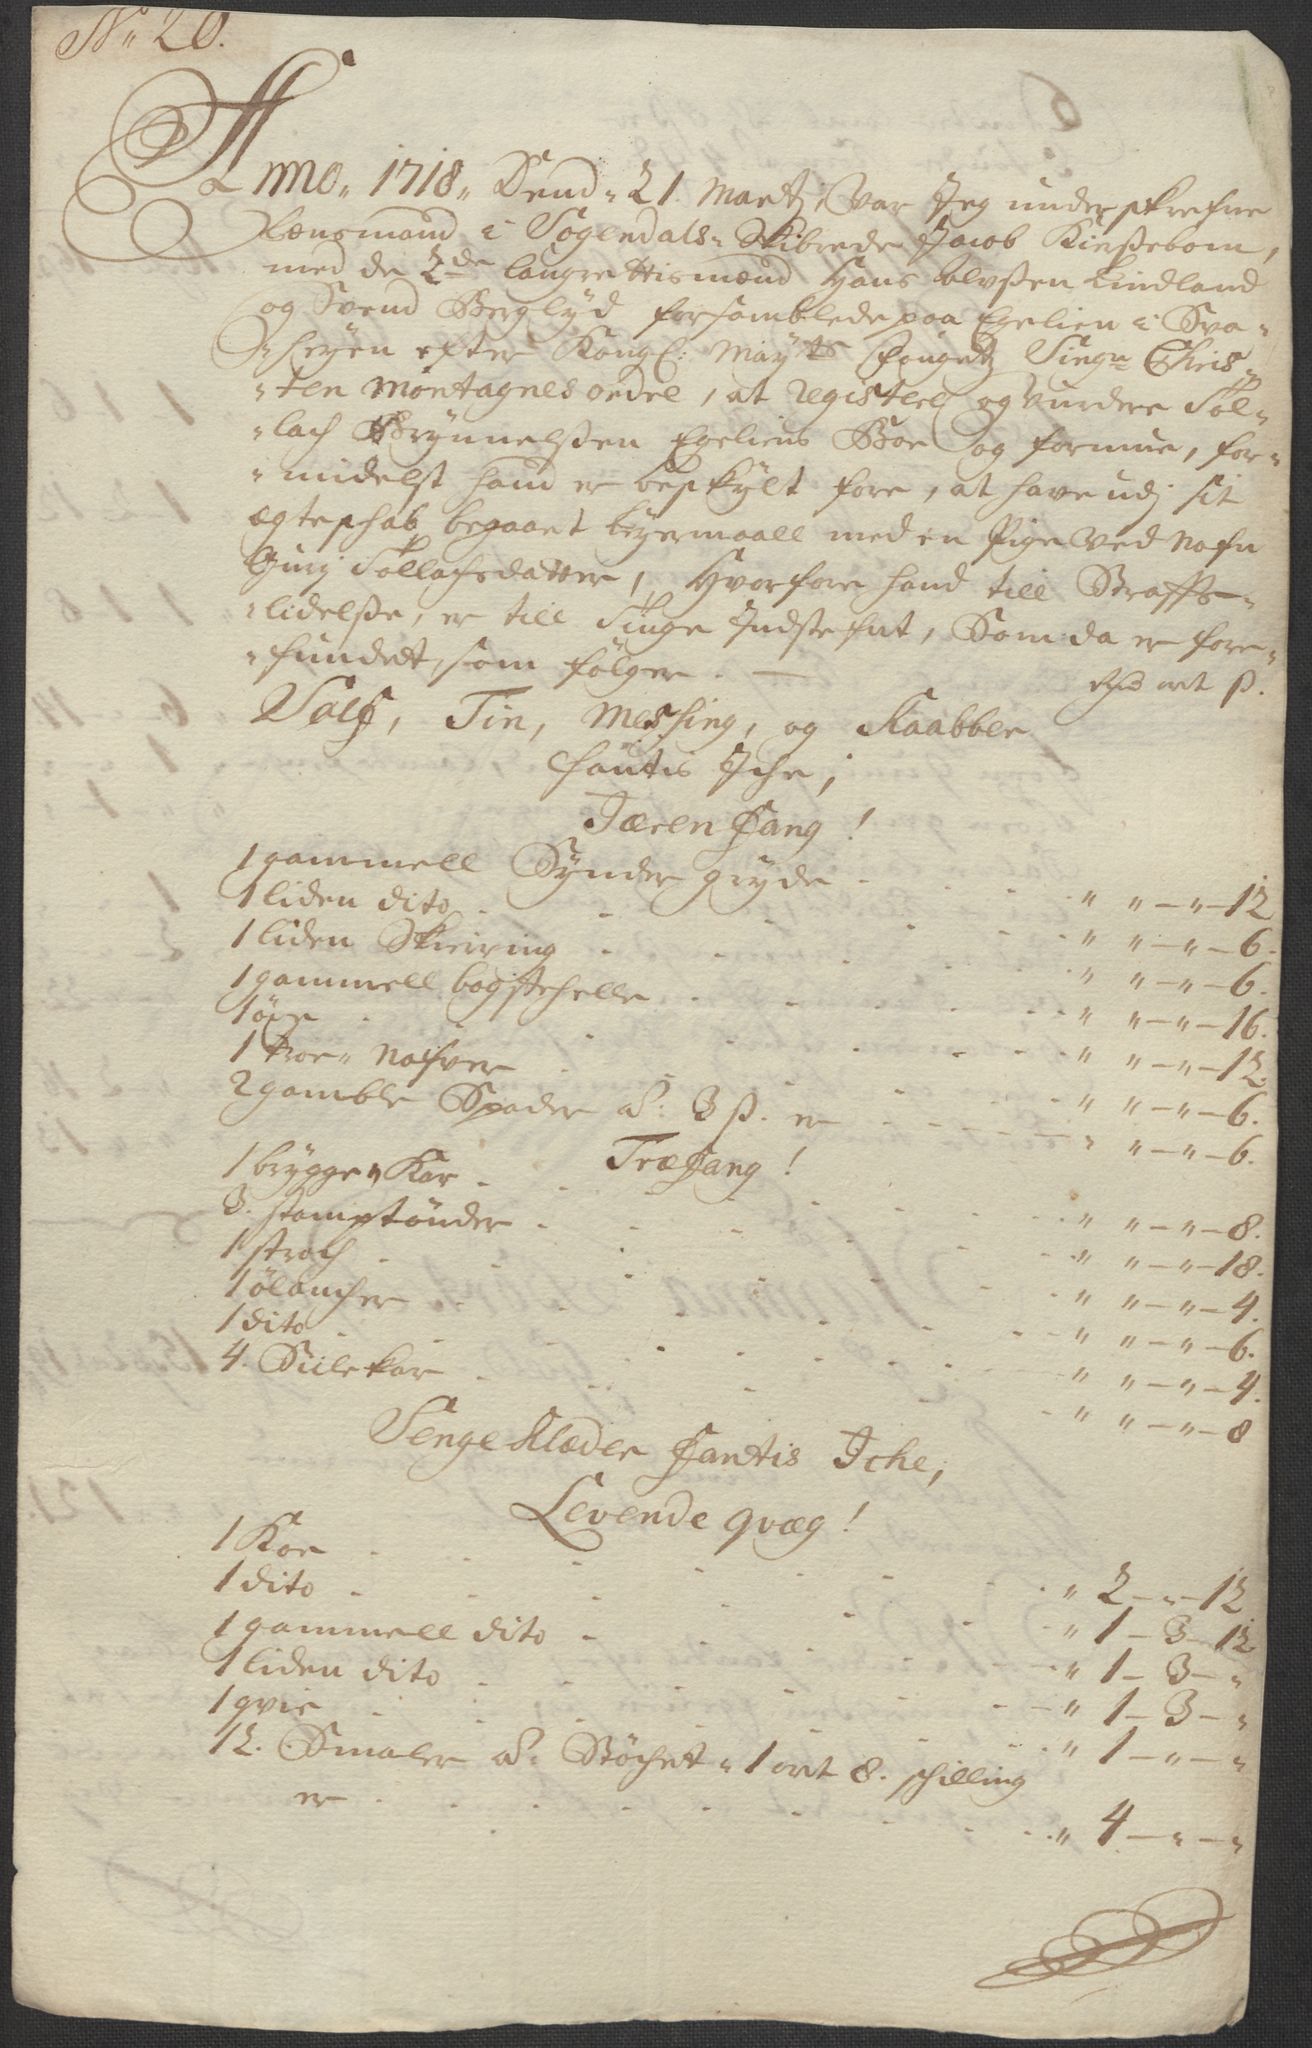 No 20.
Anno 1718 Dend 21 Martj, Var Jeg underskrefne
Lænsmand i Sogendals Skibrede Jacob Kirsebom,
med de 2de laugrettismænd Hans Olvssen Lindland
og Svend Berglyd forsamblede paa Egelien i Sva-
heyen efter Kongl: Mayts fougetz Siegr Chris-
ten Montagnes ordre, at registere og vurdere Tol-
lach Brynnelssen Egeliens Boe og formue, for-
midelst hand er beskylt fore, at have udj sit
ægteschab begaaet leyermaall med en Pige ved nafn
Gurj Tollachsdatter, Hvorfore hand till Straffs-
lidelsse, er till Tinge Indstefnt, Som da er fore-
fundet, som følger. —
Rdr ort ss.
Sølf, Tin, Messing, og Kaabber
fantis Iche;
Jæren fang!
1 gammell Synder gryde . . . " " — " — 12
1 liden dito . . . " " — " — 6.
1 liden Skiering . . . " " — " — 6.
1 gammell bagstehelle . . . " " — " — 16.
1 øxe . . . " " — " — 12.
1 Noe- Nafver . . . " " — " — 6.
2 gamble Spader a: 3 ss. er . . . " " — " — 6.
Træfang!
1 brygge Kar . . . " " — " — 8.
3. stamptønder . . . " " — " — 18.
1 stroch . . . " " — " — 4.
1 ølancher . . . " " — " — 6.
1 dito . . . " " — " — 4.
4. Siilekar . . . " " — " — 8
Senge Klæder fantis Iche;
Levende qvæg!
1 Koe . . . " 2 — " — 12
1 dito . . . " 1 — 3 — 12
1 gammell dito . . . " 1 — 3 — "
1 liden dito . . . " 1 — 3 — "
1 qvie . . . " 1 — " — "
12. Smaler a: Støchet 1 ort 8. schilling
er . . . " 4 — " — "